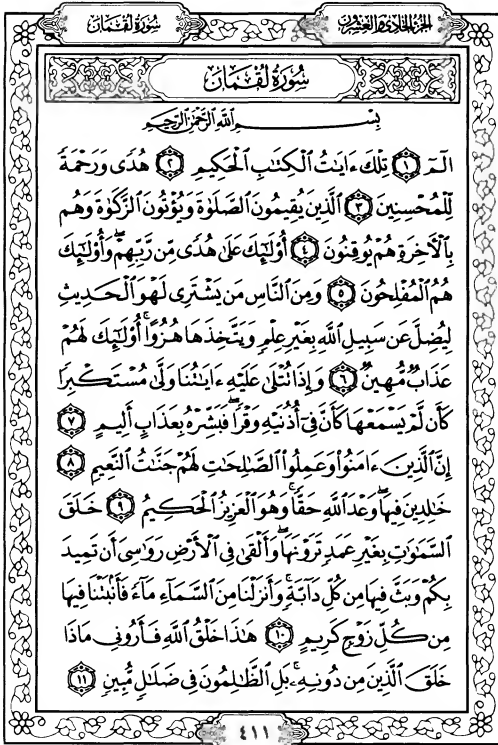 الجُزْءُ الحَادِي وَالعِشْرُونَ
سُورَةُ لُقْمَان
سُورَةُ لُقْمَان
بِسْمِ اللَّهِ الرَّحْمَٰنِ الرَّحِيمِ
الٓمٓ ١ تِلْكَ ءَايَٰتُ الْكِتَٰبِ الْحَكِيمِ ٢ هُدًى وَرَحْمَةً
لِّلْمُحْسِنِينَ ٣ الَّذِينَ يُقِيمُونَ الصَّلَوٰةَ وَيُؤْتُونَ الزَّكَوٰةَ وَهُم
بِالْأَخِرَةِ هُمْ يُوقِنُونَ ٤ أُوْلَٰٓئِكَ عَلَىٰ هُدًى مِّن رَّبِّهِمْ ۖ وَأُوْلَٰٓئِكَ
هُمُ الْمُفْلِحُونَ ٥ وَمِنَ النَّاسِ مَن يَشْتَرِى لَهْوَ الْحَدِيثِ
لِيُضِلَّ عَن سَبِيلِ اللَّهِ بِغَيْرِ عِلْمٍ وَيَتَّخِذَهَا هُزُوًا ۚ أُوْلَٰٓئِكَ لَهُمْ
عَذَابٌ مُّهِينٌ ٦ وَإِذَا تُتْلَىٰ عَلَيْهِ ءَايَٰتُنَا وَلَّىٰ مُسْتَكْبِرًا
كَأَن لَّمْ يَسْمَعْهَا كَأَنَّ فِىٓ أُذُنَيْهِ وَقْرًا ۖ فَبَشِّرْهُ بِعَذَابٍ أَلِيمٍ ٧
إِنَّ الَّذِينَ ءَامَنُوا وَعَمِلُوا الصَّٰلِحَٰتِ لَهُمْ جَنَّٰتُ النَّعِيمِ ٨
خَٰلِدِينَ فِيهَا ۖ وَعْدَ اللَّهِ حَقًّا ۚ وَهُوَ الْعَزِيزُ الْحَكِيمُ ٩ خَلَقَ
السَّمَٰوَٰتِ بِغَيْرِ عَمَدٍ تَرَوْنَهَا ۖ وَأَلْقَىٰ فِى الْأَرْضِ رَوَٰسِىَ أَن تَمِيدَ
بِكُمْ وَبَثَّ فِيهَا مِن كُلِّ دَآبَّةٍ ۚ وَأَنزَلْنَا مِنَ السَّمَآءِ مَآءً فَأَنۢبَتْنَا فِيهَا
مِن كُلِّ زَوْجٍ كَرِيمٍ ١٠ هَٰذَا خَلْقُ اللَّهِ فَأَرُونِى مَاذَا
خَلَقَ الَّذِينَ مِن دُونِهِۦ ۚ بَلِ الظَّٰلِمُونَ فِى ضَلَٰلٍ مُّبِينٍ ١١
٤١١